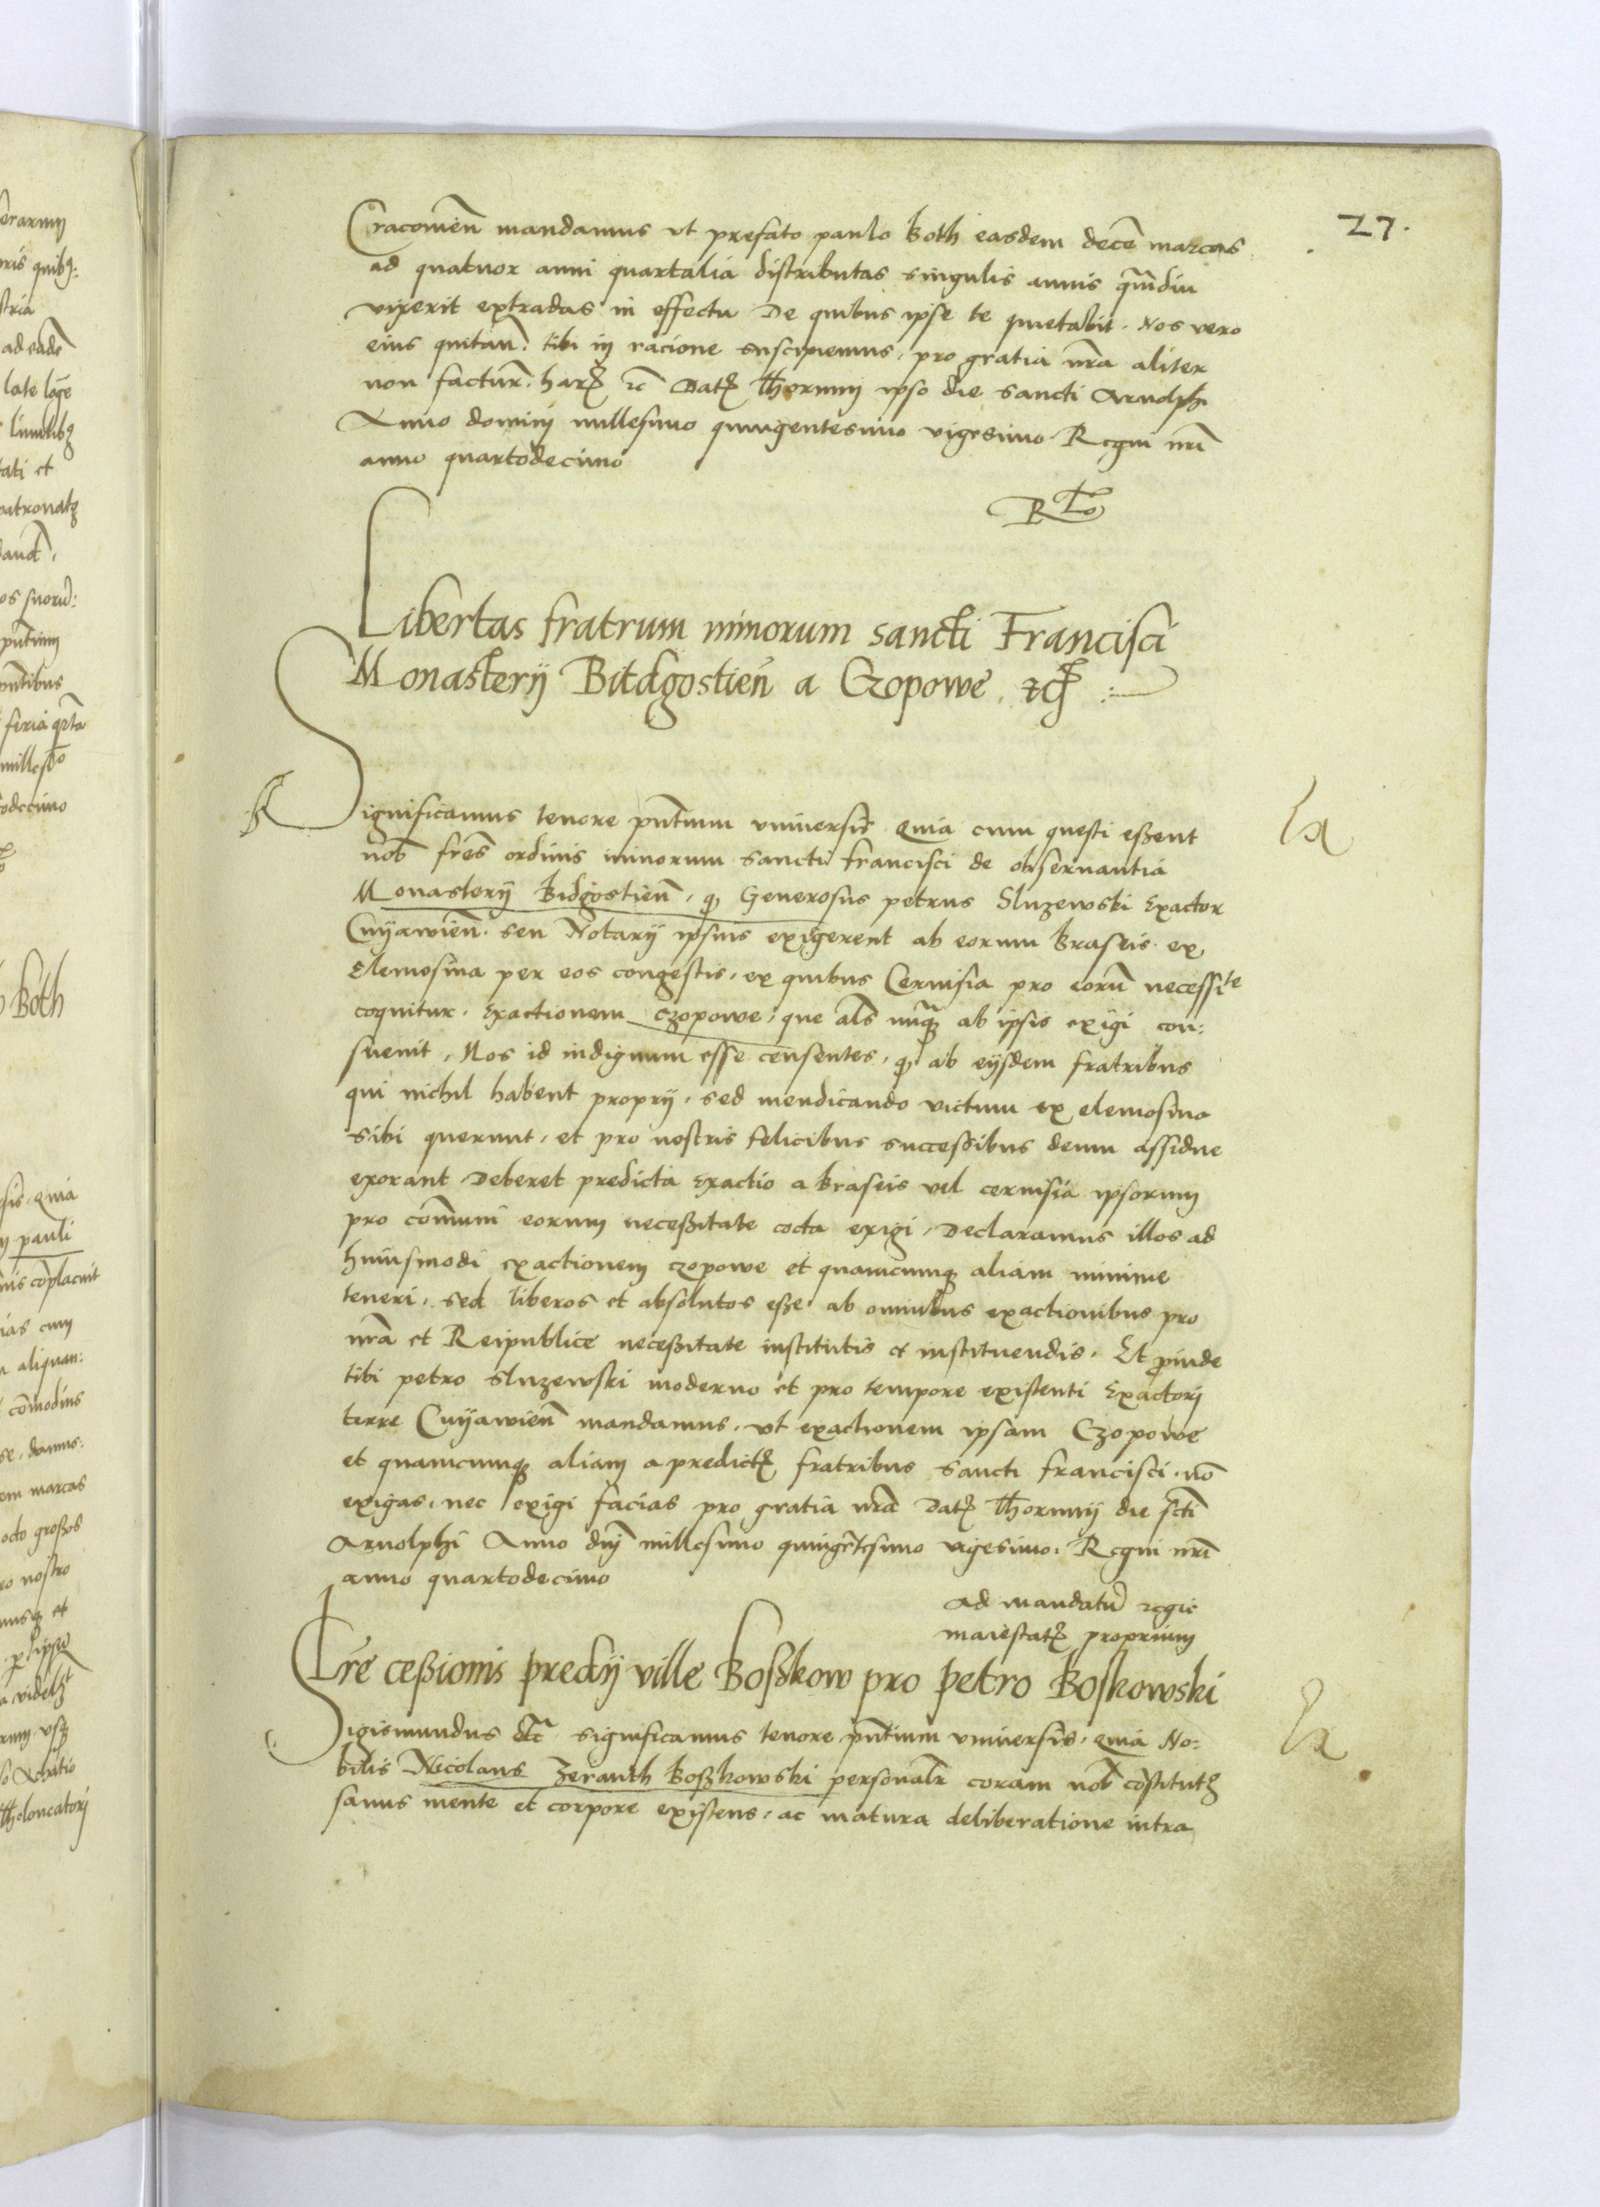 27.
Cracovien̄ mandamus vt prefato paulo Both easdem decē marcas
ad quatuor anni quartalia distributas singulis annis q̄mdiu
vixerit extradas in effectu De quibus ipse te quietabit. Nos vero
eius quitan̄. tibi in racione suscipiemus, pro gratia nr̄a aliter
non factur̄. harꝝ ꝛc̄ Datꝝ Thorunij ipso die sancti Arnolphi
Anno dominj millesimo quingentesimo vigesimo Regni nr̄i
anno quartodecimo
Libertas fratrum minorum sancti Francisci
Monasterij Bitdgostien̄ a Czopowe. ꝛc̄
Significamus tenore pn̄tium vniuersis Quia cum questi eßent
nob̄ fr̄es ordinis minorum sancti francisci de obseruantia
Monasterij Bidgostien̄, qꝫ Generosus petrus Sluzewski Exactor
Cuyawien̄. seu Notarij ipsius exigerent ab eorum braseis ex
Elemosina per eos congestis, ex quibus Ceruisia pro eorū necessite
coquitur. Exactionem czopowe, que al̄s nūqꝫ ab ipsis exigi con:
sueuit, Nos id indignum esse censentes, qꝫ ab eijsdem fratribus
qui nichil habent proprij, sed mendicando victum ex elemosina
sibi querunt, et pro nostris felicibus succeßibus deum assidue
exorant Deberet predicta Exactio a braseis vel ceruisia ipsorum
pro cōmuni eorum neceßitate cocta exigi, Declaramus illos ad
huiusmodi exactionem czopowe et quamcumqꝫ aliam minime
teneri, sed liberos et absolutos eße ab omnibus exactionibus pro
nr̄a et Reipublice neceßitate institutis et instituendis. Et proinde
tibi petro Sluzewski moderno et pro tempore existenti Exactorj
terre Cuyawien̄ mandamus, vt exactionem ipsam Czopowe
et quamcumqꝫ aliam a predictꝭ fratribus sancti francisci nō
exigas, nec exigi facias pro gratia nr̄a Datꝝ Thorunij die sc̄ti
Arnolphi Anno dn̄j millesimo quingētesimo vigesimo. Regni nr̄i
anno quartodecimo
Ad mandatū regie
maiestatꝭ proprium
Lr̄e ceßionis predij ville Boßkow pro petro Boskowski
Sigismundus ꝛc̄ significamus tenore pn̄tium vniuersis, Quia No:
bilis Nicolaus Zeranth Boßkowski personalr̄ coram nob̄ cōstitutꝰ
sanus mente et corpore existens, ac matura deliberatione intra